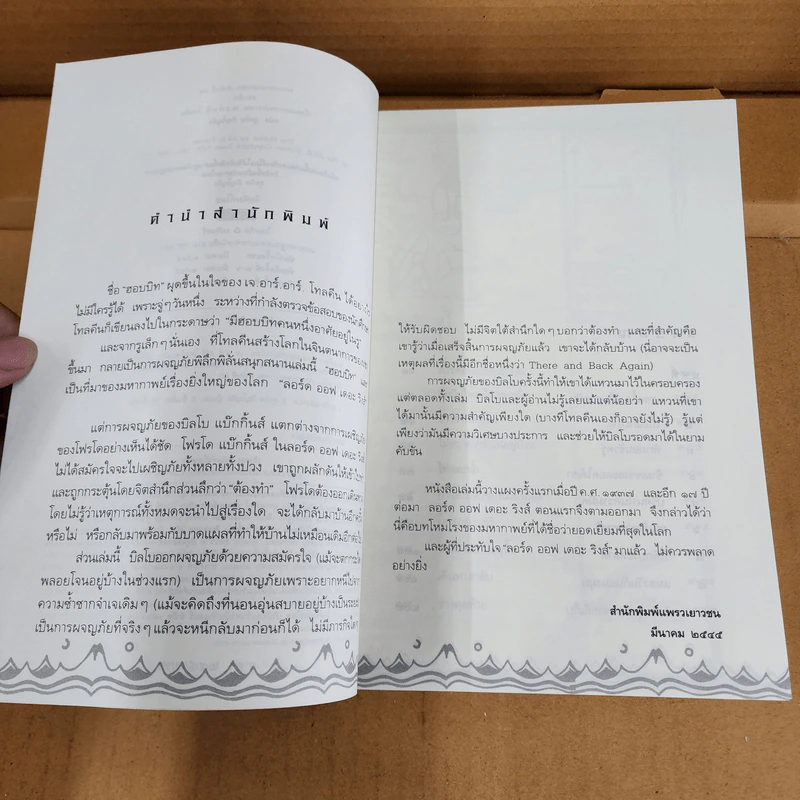 คำนำสำนักพิมพ์
ชื่อ "ฮอบบิท" ผุดขึ้นในใจของ เจ.อาร์.อาร์. โทลคีน ได้อย่างไร
ไม่มีใครรู้ได้ เพราะจู่ๆ วันหนึ่ง ระหว่างที่กำลังตรวจข้อสอบของนักศึกษา
โทลคีนก็เขียนลงไปในกระดาษว่า "มีฮอบบิทคนหนึ่งอาศัยอยู่ในรู"
และจากรูเล็กๆ นั่นเอง ที่โทลคีนสร้างโลกในจินตนาการของเขา
ขึ้นมา กลายเป็นการผจญภัยพิลึกพิลั่นสนุกสนานเล่มนี้ "ฮอบบิท" และ
เป็นที่มาของมหากาพย์เรื่องยิ่งใหญ่ของโลก "ลอร์ด ออฟ เดอะ ริงส์"
แต่การผจญภัยของบิลโบ แบ๊กกิ้นส์ แตกต่างจากการเผชิญภัย
ของโฟรโดอย่างเห็นได้ชัด โฟรโด แบ๊กกิ้นส์ ในลอร์ด ออฟ เดอะ ริงส์
ไม่ได้สมัครใจจะไปเผชิญภัยทั้งหลายทั้งปวง เขาถูกผลักดันให้เข้าไป
และถูกกระตุ้นโดยจิตสำนึกส่วนลึกว่า "ต้องทำ" โฟรโดต้องออกเดินทาง
โดยไม่รู้ว่าเหตุการณ์ทั้งหมดจะนำไปสู่เรื่องใด จะได้กลับมาบ้านอีกครั้ง
หรือไม่ หรือกลับมาพร้อมกับบาดแผลที่ทำให้บ้านไม่เหมือนเดิมอีกต่อไป
ส่วนเล่มนี้ บิลโบออกผจญภัยด้วยความสมัครใจ (แม้จะตกกระได
พลอยโจนอยู่บ้างในช่วงแรก) เป็นการผจญภัยเพราะอยากหนีไปจาก
ความซ้ำซากจำเจเดิมๆ (แม้จะคิดถึงที่นอนอุ่นสบายอยู่บ้างเป็นระยะ)
เป็นการผจญภัยที่จริงๆ แล้วจะหนีกลับมาก่อนก็ได้ ไม่มีภารกิจใด
ให้รับผิดชอบ ไม่มีจิตใต้สำนึกใดๆ บอกว่าต้องทำ และที่สำคัญคือ
เขารู้ว่าเมื่อเสร็จสิ้นการผจญภัยแล้ว เขาจะได้กลับบ้าน (นี่อาจจะเป็น
เหตุผลที่เรื่องนี้มีอีกชื่อหนึ่งว่า There and Back Again)
การผจญภัยของบิลโบครั้งนี้ทำให้เขาได้แหวนมาไว้ในครอบครอง
แต่ตลอดทั้งเล่ม บิลโบและผู้อ่านไม่รู้เลยแม้แต่น้อยว่า แหวนที่เขา
ได้มานั้นมีความสำคัญเพียงใด (บางทีโทลคีนเองก็อาจยังไม่รู้) รู้แต่
เพียงว่ามันมีความวิเศษบางประการ และช่วยให้บิลโบรอดมาได้ในยาม
คับขัน
หนังสือเล่มนี้วางแผงครั้งแรกเมื่อปี ค.ศ. ๑๙๓๗ และอีก ๑๗ ปี
ต่อมา ลอร์ด ออฟ เดอะ ริงส์ ตอนแรกจึงตามออกมา จึงกล่าวได้ว่า
นี่คือบทโหมโรงของมหากาพย์ที่ได้ชื่อว่ายอดเยี่ยมที่สุดในโลก
และผู้ที่ประทับใจ "ลอร์ด ออฟ เดอะ ริงส์" มาแล้ว ไม่ควรพลาด
อย่างยิ่ง
สำนักพิมพ์แพรวเยาวชน
มีนาคม ๒๕๔๕